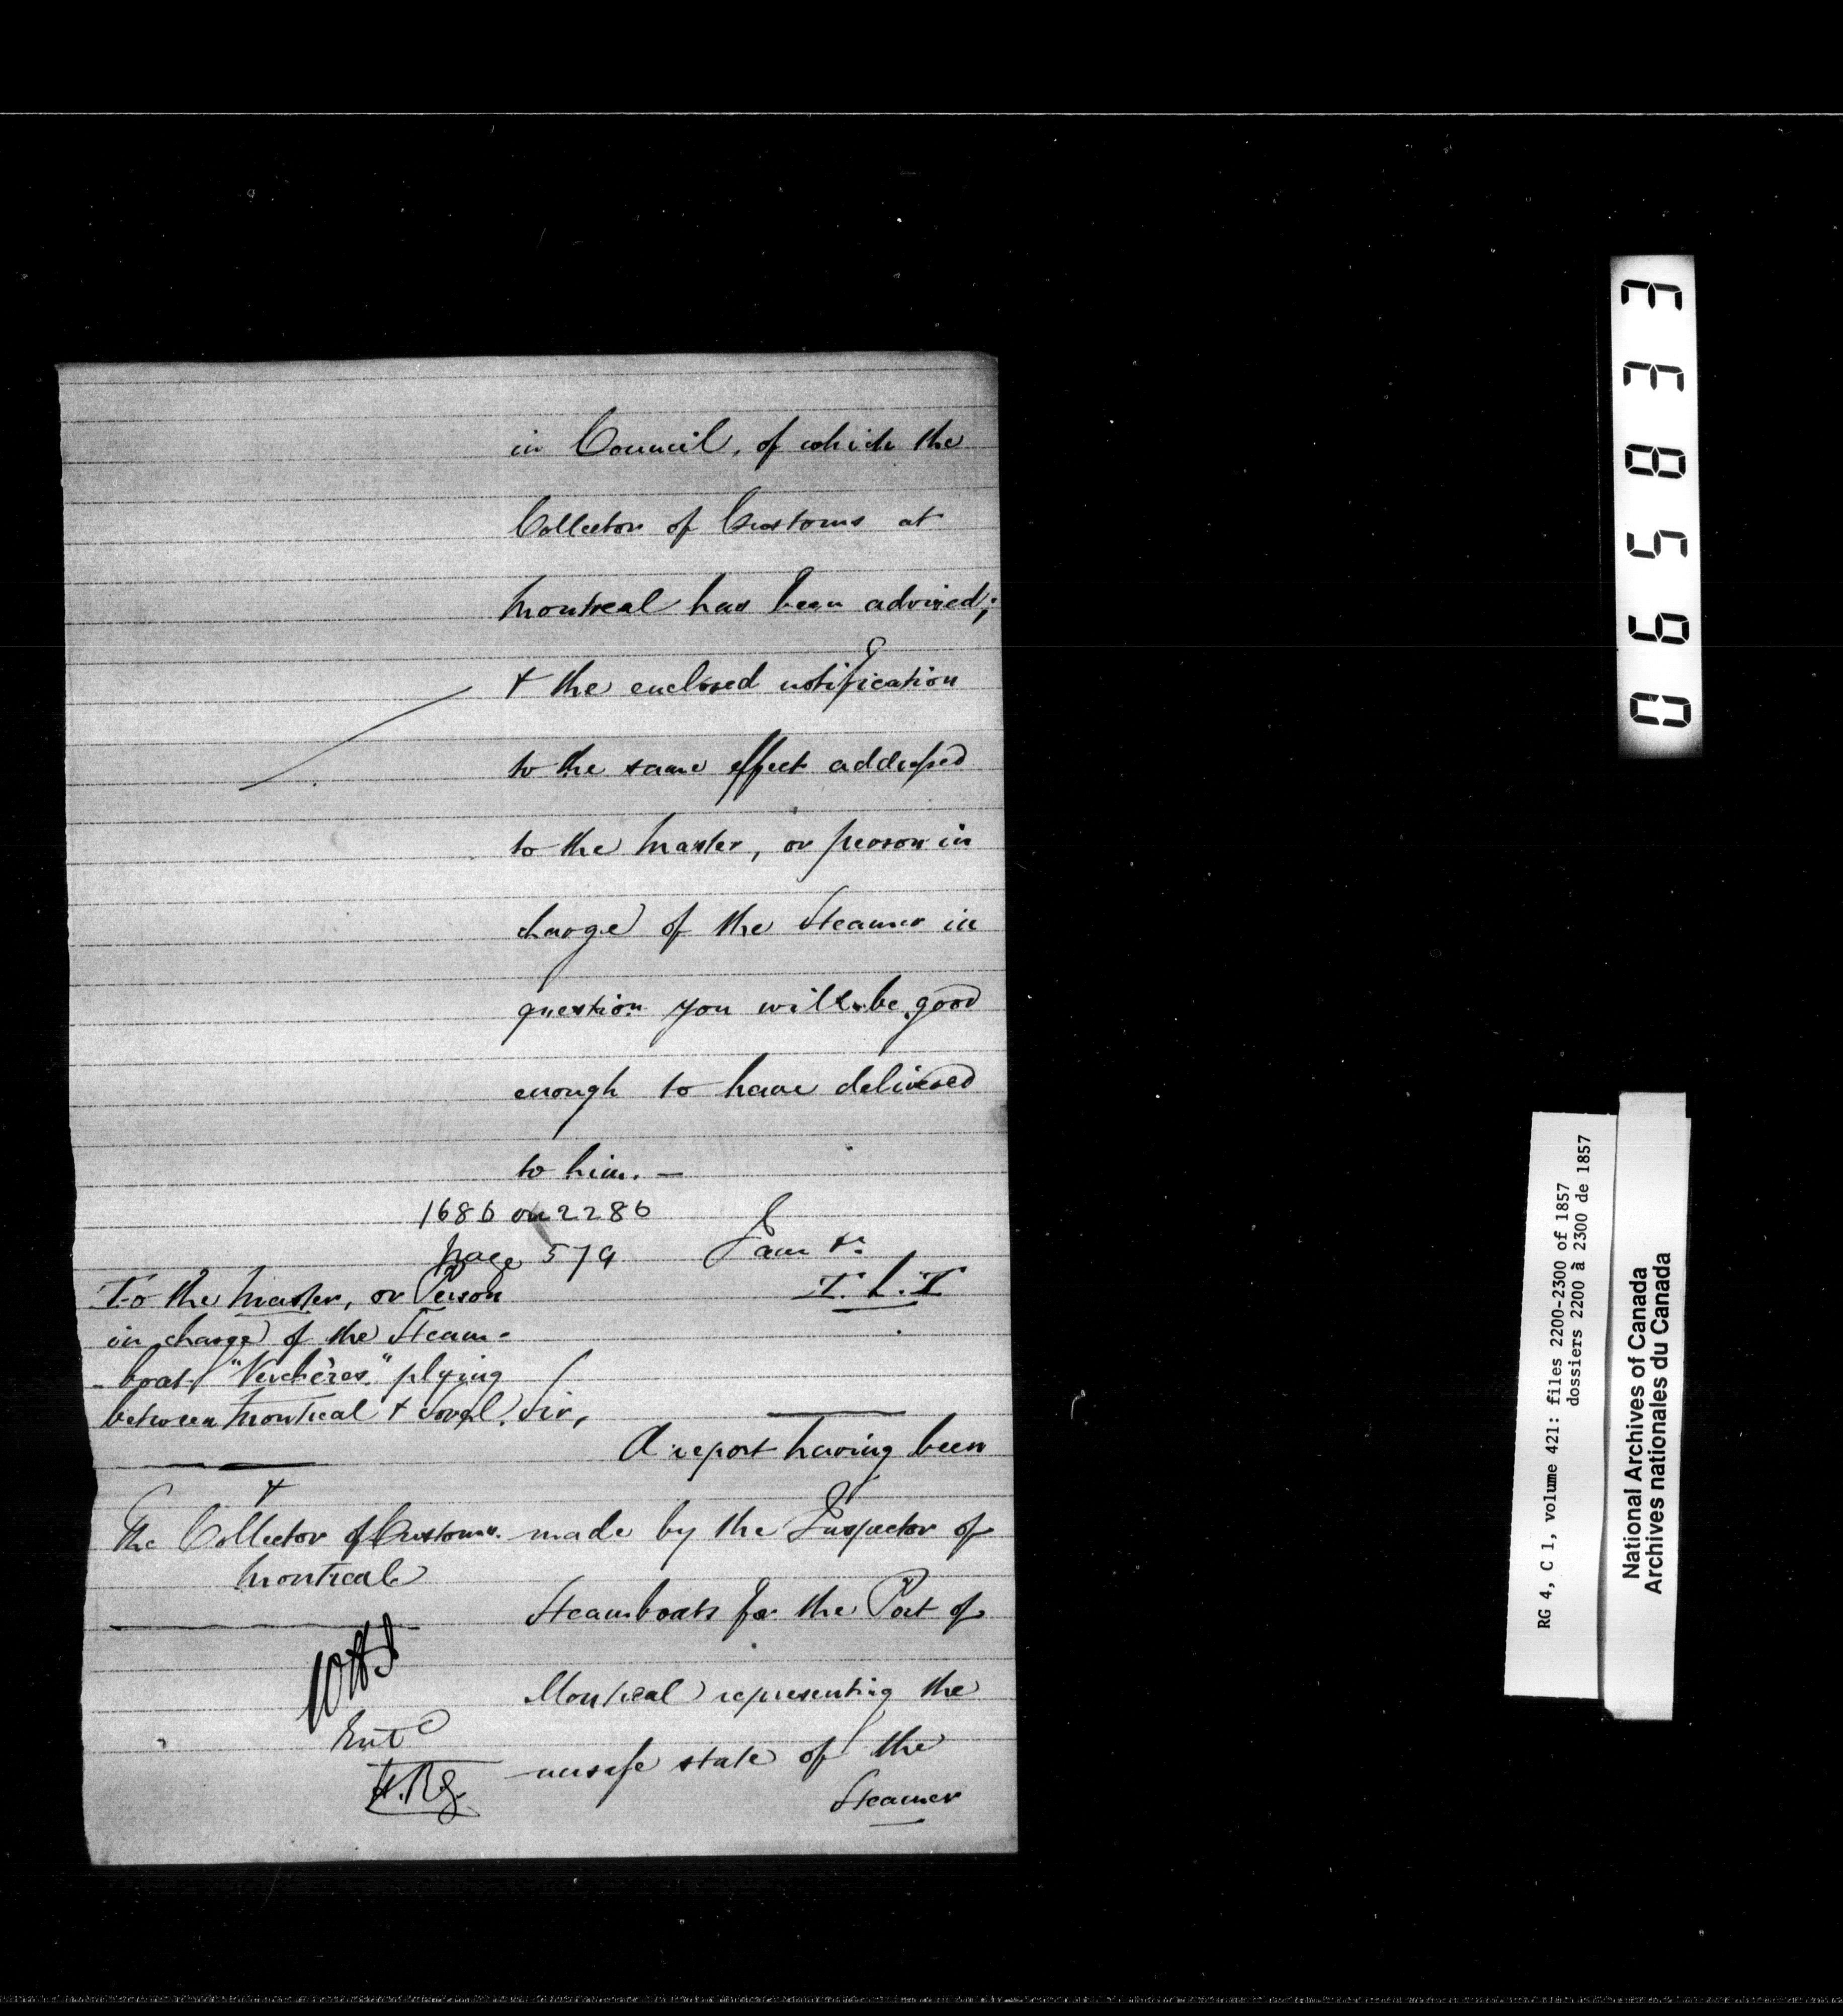 in Council, of which the
Collector of Customs at
Montreal has been advised;
+ the enclosed notification
to the same effect addressed
to the Master, or person in
charge of the Steamer in
question you will be good
enough to have delivered
to him. —
1686 on 2286
page 579
I am &c
T. L. T
To the Master, or Person
in charge of the Steam-
-boat "Verchères" plying
between Montreal + Sorel.
Sir,
A report having been
+
The Collector of Customs.
Montreal
made by the Inspector of
Steamboats for the Port of
Montreal representing the
unsafe state of the
Steamer
Entd
065833
RG 4, C 1, volume 421: files 2200-2300 of 1857
dossiers 2200 à 2300 de 1857
National Archives of Canada
Archives nationales du Canada